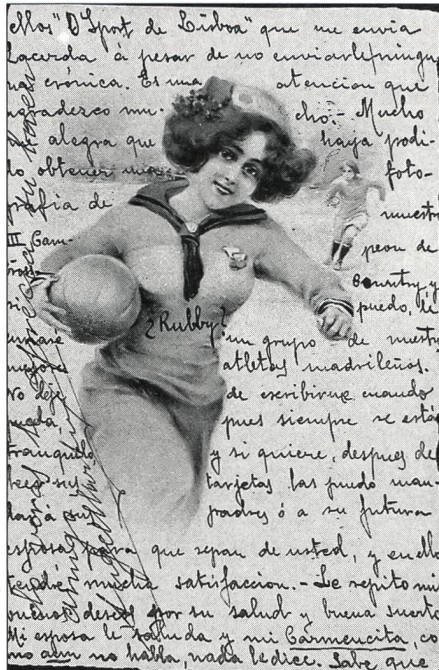 ellos "O Sport de Lisboa" que me envia
Lacerda á pesar de no enviarle
crónica. Es una atencion que
agradezco mu- cho.- Mucho
alegra que haya podi-
do obtener foto-
grafia de nuestro
III Cam- peon de
Country y
si puedo, le
¿Rubby?
un grupo de nuestros
atletas madrileños.
No deje de escribirme cuando
pueda, pues siempre se está
tranquilo y si quiere, despues de
leer sus tarjetas las puedo man-
dar á sus padres ó a su futura
esposa para que sepan de usted, y en ello
tendré mucha satisfaccion.- Le repito mis
buenos deseos por su salud y buena suerte
Mi esposa le saluda y mi Carmencita, co
mo aun no habla, nada le dice. Sabe que